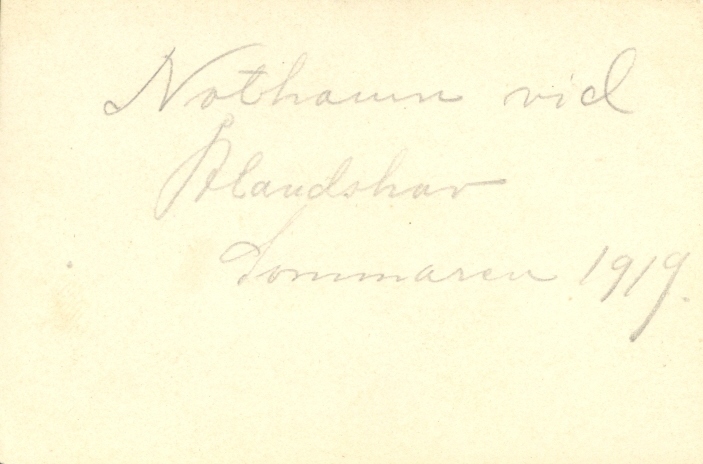 Nothamn vid
Ålandshav
Sommaren 1919.